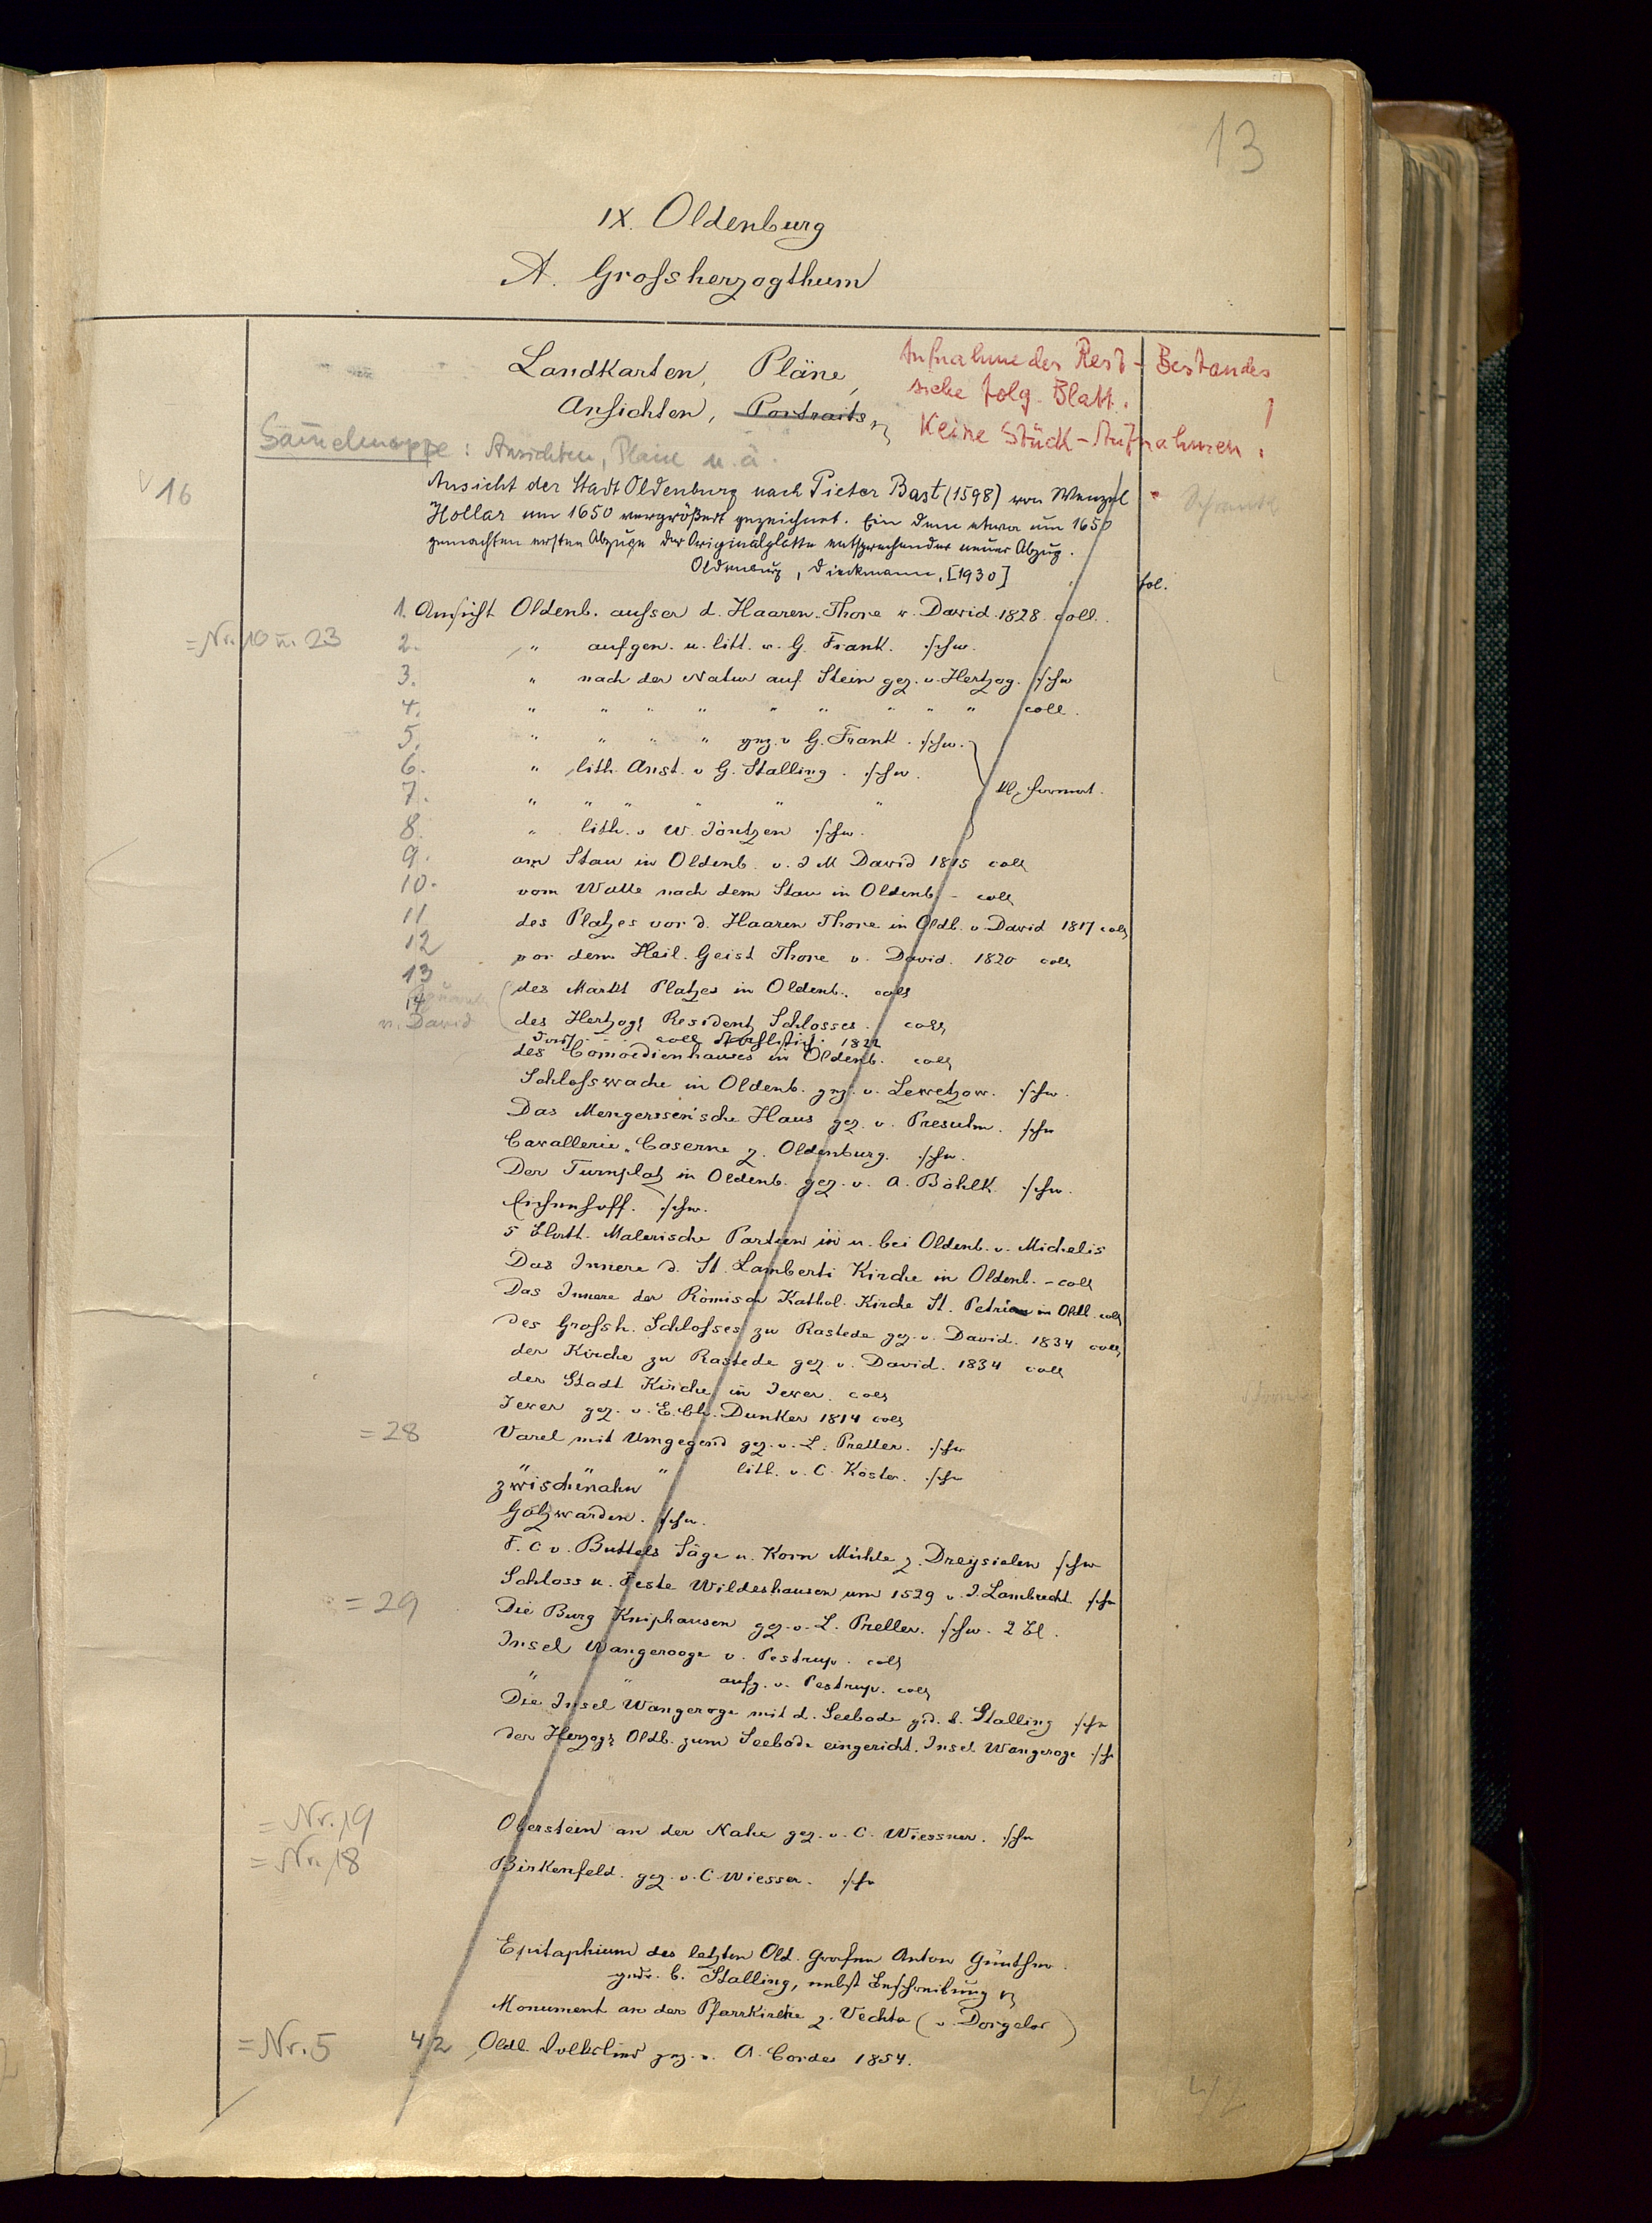 13
IX. Oldenburg
A. Grossherzogthum
Landkarten, Pläne,
Ansichten, Portraits
Aufnahme des Rest-Bestandes
siehe folg. Blatt. !
Keine Stück-Aufnahmen.
Sammelmappe: Ansichten, Pläne u. ä.
16
Ansicht der Stadt Oldenburg nach Pieter Bast (1598) von Wenzel
Hollar um 1650 vergrößert gezeichnet. Ein dem etwa um 1650
gemachten ersten Abzuge der Originalplatte entsprechender neuer Abzug.
Oldenburg, Dieckmann, [1930]
fol.
1. Ansicht Oldenb. ausser d. Haaren-Thore v. David 1828 coll.
= Nr. 10 u. 23
2. " aufgen. u. lith. v. G. Frank. schw.
3. " nach der Natur auf Stein gez. v. Hertzog. schw
4. " " " " " " " " " coll.
5. " " " " gez. v G. Frank. schw.
6. " lith. Anst. v G. Stalling. schw.
kl. format.
7. " " " " " "
8. " lith. v W. Jöntzen schw.
9. am Stau in Oldenb. v. J M David 1815 coll
10. vom Walle nach dem Stau in Oldenb. - coll
11 des Platzes vor d. Haaren Thore in Oldb. v. David 1817 coll
12 vor dem Heil. Geist Thore v. David. 1820 coll
13 des Markt Platzes in Oldenb. coll
14
v. David
des Hertzogl Residentz Schlosses. coll
coll 1822
des Comoedienhauses in Oldenb. coll
Schlosswache in Oldenb. gez. v. Lewetzow. schw.
Das Mengerssen'sche Haus gez. v. Presuhn. schw
Cavallerie-Caserne z. Oldenburg. schw.
Der Turnplatz in Oldenb. gez. v. A. Böhlk. schw.
schw.
5 Blatt. Malerische Partien in u. bei Oldenb. v. Michelis
Das Innere d. St. Lamberti Kirche in Oldenb. - coll
Das Innere der Römisch Kathol. Kirche St. Petri in Oldb. coll
des Grossh. Schlosses zu Rastede gez. v. David. 1834 coll
der Kirche zu Rastede gez. v. David. 1834 coll
der Stadt Kirche in Jever. coll
Jever gez. v. E. Ch. Dunker 1814 coll
= 28
Varel mit Umgegend gez. v. L. Preller. schw
" " " lith. v. C. Köster. schw
Zwischenahn
Golzwarden. schw.
F. C v. Buttels Säge u. Korn Mühle z. Dreysielen schw
Schloss u. Feste Wildeshausen um 1529 v. J. Lambrecht. schw
= 29
Die Burg Kniphausen gez. v. L. Preller. schw. 2 Bl.
Insel Wangerooge v. Pestrup. coll
" " aufg. v. Pestrup. coll
Die Insel Wangeroge mit d. Seebade gid. b. Stalling schw
der Herzogl Oldb. zum Seebade eingericht. Insel Wangeroge sch
= Nr. 19
Oberstein an der Nahe gez. v. C. Wiessner. schw
= Nr. 18
Birkenfeld. gez. v. C. Wiesser. schw
Epitaphium des letzten Old. Grafen Anton Günther.
gedr. b. Stalling, nebst Beschreibung
Monument an der Pfarrkirche z. Vechta (v. Dorgelo)
= Nr. 5
42 Oldb. Volkslied gez. v. A. Cordes 1854.
42